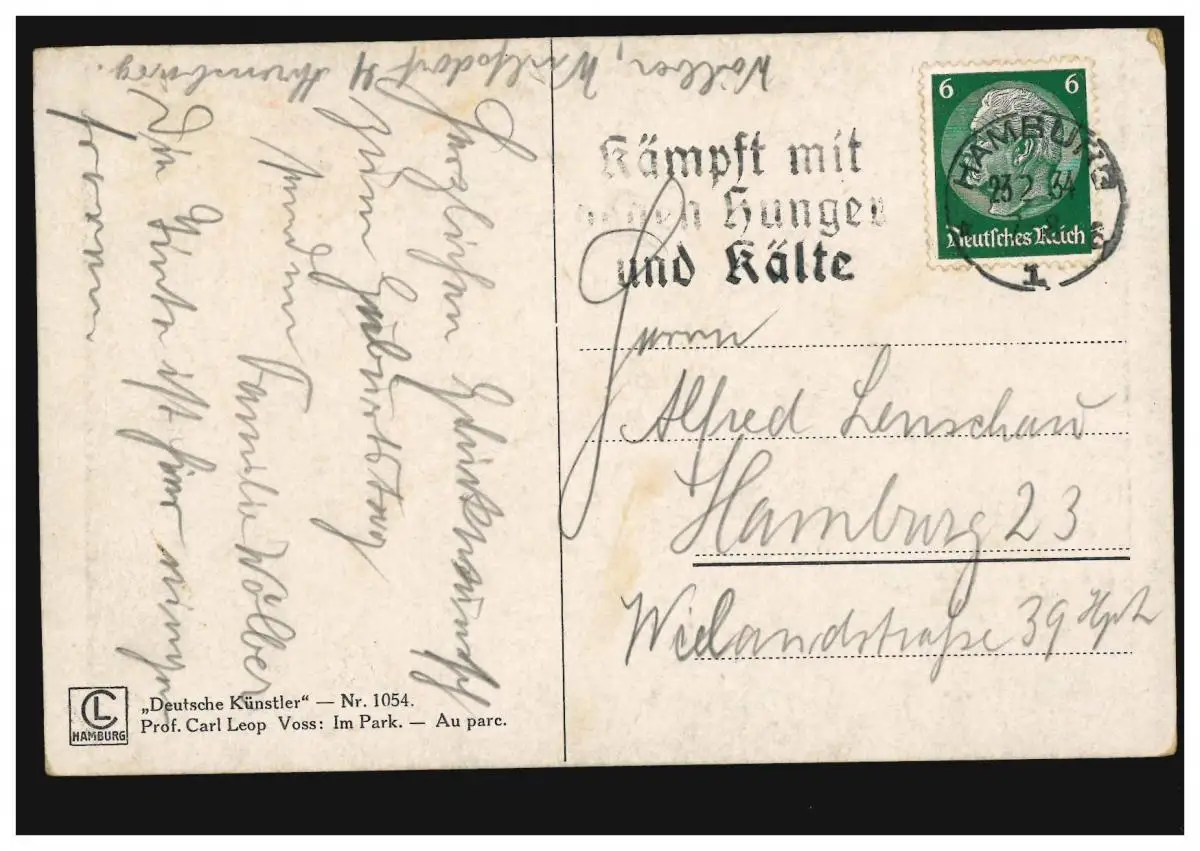 Wölber,
Kämpft mit
gegen Hunger
und Kälte
6 6
Deutsches Reich
HAMBURG
23 2 34
1
Herrn
Alfred Lenschau
Hamburg 23
Wielandstraße 39 Hpt
Herzlichen Glückwunsch
zum Geburtstag
sendet
Familie Wölber
Die ist hier
„Deutsche Künstler“ — Nr. 1054.
Prof. Carl Leop Voss: Im Park. — Au parc.
CL
HAMBURG